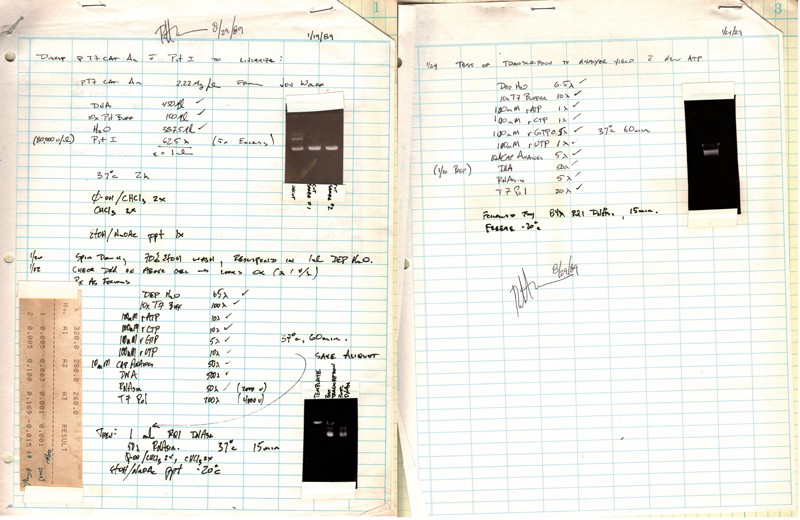 1
8/29/89
1/19/89
Digest of T7 CAT An c̄ Pst I to linearize:
pT7 CAT An 2.22 µg/µl From Jon Wolff
DNA 450 λ ✓
10x Pst Buff 100 λ ✓
H2O 387.5 λ ✓
Pst I 62.5 λ (5x Excess)
37°C 2h
φ-OH/CHCl3 2x
CHCl3 2x
EtOH/NaOAc ppt 1x
1/20 Spin Down, 70% EtOH wash, Resuspend in 1ml DEP H2O.
1/22 Check DNA on Above Gel → Looks OK
Rx As Follows
DEP H2O 65λ ✓
10x T7 Buff 100λ ✓
100mM rATP 10λ ✓
100mM rCTP 10λ ✓
100mM rGTP 5λ ✓
100mM rUTP 10λ ✓
10mM CAP Analog 50λ ✓
DNA 500λ ✓
RNAsin 50λ ✓
T7 Pol 200λ
37°C, 60min.
SAVE Aliquot
TEMPLATE
Then: 1 ml RQ1 DNAse
50λ RNAsin. 37°C 15min
φ-OH/CHCl3 2x, CHCl3 2x
EtOH/NaOAc ppt -20°C
No. A1 A2 A3 RESULT
λ 320.0 280.0 260.0
3
1/24/89
1/24 Test of Transcription to Analyze Yield c̄ New ATP
DEP H2O 6.5λ ✓
10x T7 Buffer 10λ ✓
100mM rATP 1λ ✓
100mM rCTP 1λ ✓
100mM rGTP 0.5λ ✓
100mM rUTP 1λ ✓
10mM CAP Analog 5λ ✓
DNA 50λ ✓
RNAsin 5λ ✓
T7 Pol 20λ ✓
37°C 60min
Followed by 84λ RQ1 DNAse, 15min.
Freeze -20°C
8/29/89